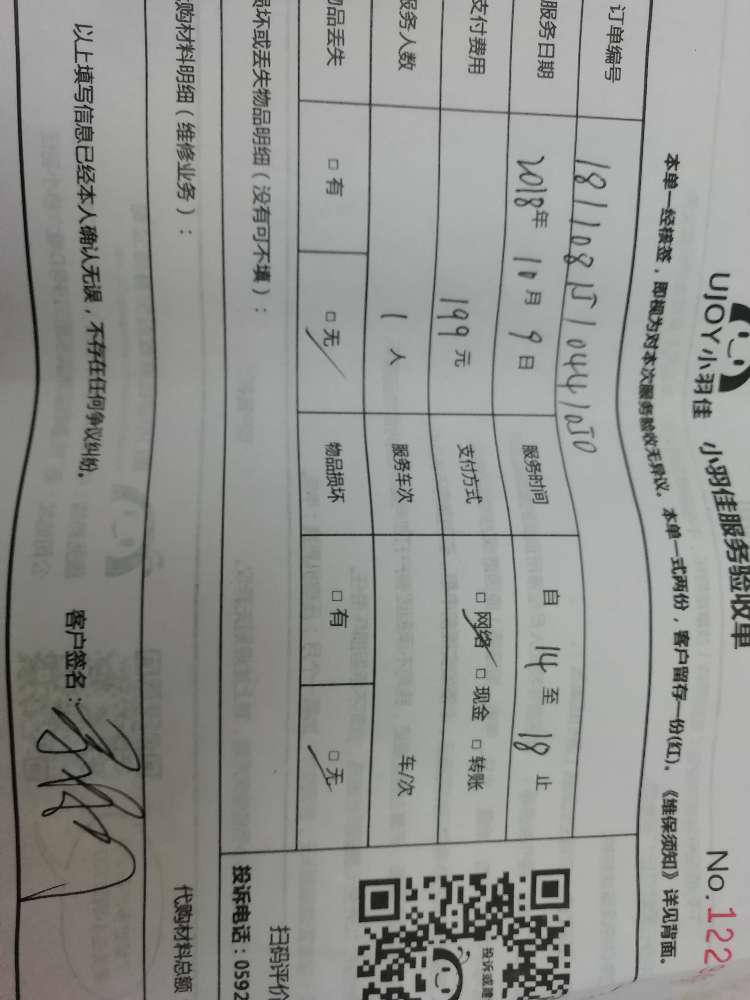 UJOY小羽佳 小羽佳服务验收单 No.122
本单一经核签，即视为对本次服务验收无异议。本单一式两份，客户留存一份(红)。《维保须知》详见背面。
订单编号
服务日期 2018年 10月 9日 服务时间 自 14 至 18 止
支付费用 199元 支付方式 □ 网络 □ 现金 □ 转账
服务人数 1 人 服务车次 车/次
物品丢失 □ 有 □ 无 物品损坏 □ 有 □ 无
损坏或丢失物品明细（没有可不填）：
代购材料明细（维修业务）：
代购材料总额
以上填写信息已经本人确认无误，不存在任何争议纠纷。 客户签名：
投诉或建
扫码评价
投诉电话：0592